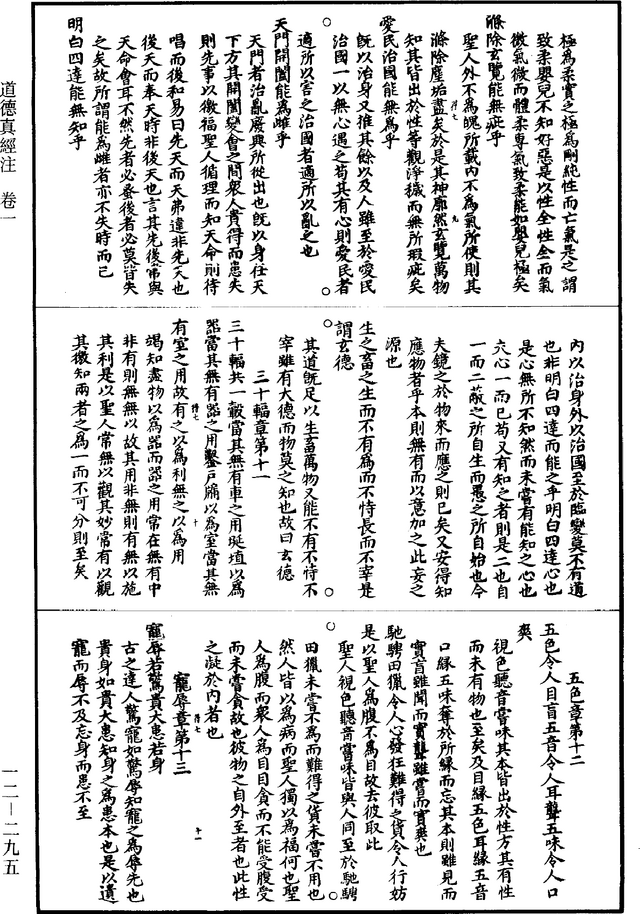 道德真經注 卷一
一二—二九五
極為柔實之極為剛純性而亡氣是之謂
致柔嬰兒不知好惡是以性全性全而氣
微氣微而體柔專氣致柔能如嬰兒極矣
滌除玄覽能無疵乎
聖人外不為魄所載內不為氣所使則其
滌除塵垢盡矣於是其神廓然玄覽萬物
知其皆出於性等觀淨穢而無所瑕疵矣
愛民治國能無為乎
既以治身又推其餘以及人雖至於愛民
治國一以無心遇之苟其有心則愛民者
適所以害之治國者適所以亂之也
天門開闔能為雌乎
天門者治亂廢興所從出也既以身任天
下方其開闔變會之間眾人貴得而患失
則先事以徼福聖人循理而知天命則待
唱而後和易曰先天而天弗違非先天也
後天而奉天時非後天也言其先後常與
天命會耳不然先者必蚤後者必莫皆失
之矣故所謂能為雌者亦不失時而已
明白四達能無知乎
內以治身外以治國至於臨變莫不有道
也非明白四達而能之乎明白四達心也
是心無所不知然而未嘗有能知之心也
夫心一而已苟又有知之者則是二也自
一而二蔽之所自生而愚之所自始也今
夫鏡之於物來而應之則已矣又安得知
應物者乎本則無有而以意加之此妄之
源也
生之畜之生而不有為而不恃長而不宰是
謂玄德
其道既足以生畜萬物又能不有不恃不
宰雖有大德而物莫之知也故曰玄德
三十輻章第十一
三十輻共一轂當其無有車之用埏埴以為
器當其無有器之用鑿戶牖以為室當其無
有室之用故有之以為利無之以為用
竭知盡物以為器而器之用常在無有中
非有則無無以故其用非無則有無以施
其利是以聖人常無以觀其妙常有以觀
其徼知兩者之為一而不可分則至矣
五色章第十二
五色令人目盲五音令人耳聾五味令人口
爽
視色聽音嘗味其本皆出於性方其有性
而未有物也至矣及目緣五色耳緣五音
口緣五味奪於所緣而忘其本則雖見而
實盲雖聞而實聾雖嘗而實爽也
馳騁田獵令人心發狂難得之貨令人行妨
是以聖人為腹不為目故去彼取此
聖人視色聽音嘗味皆與人同至於馳騁
田獵未嘗不為而難得之貨未嘗不用也
然人皆以為病而聖人獨以為福何也聖
人為腹而眾人為目目貪而不能受腹受
而未嘗貪故也彼物之自外至者也此性
之凝於內者也
寵辱章第十三
寵辱若驚貴大患若身
古之達人驚寵如驚辱知寵之為辱先也
貴身如貴大患知身之為患本也是以遺
寵而辱不及忘身而患不至